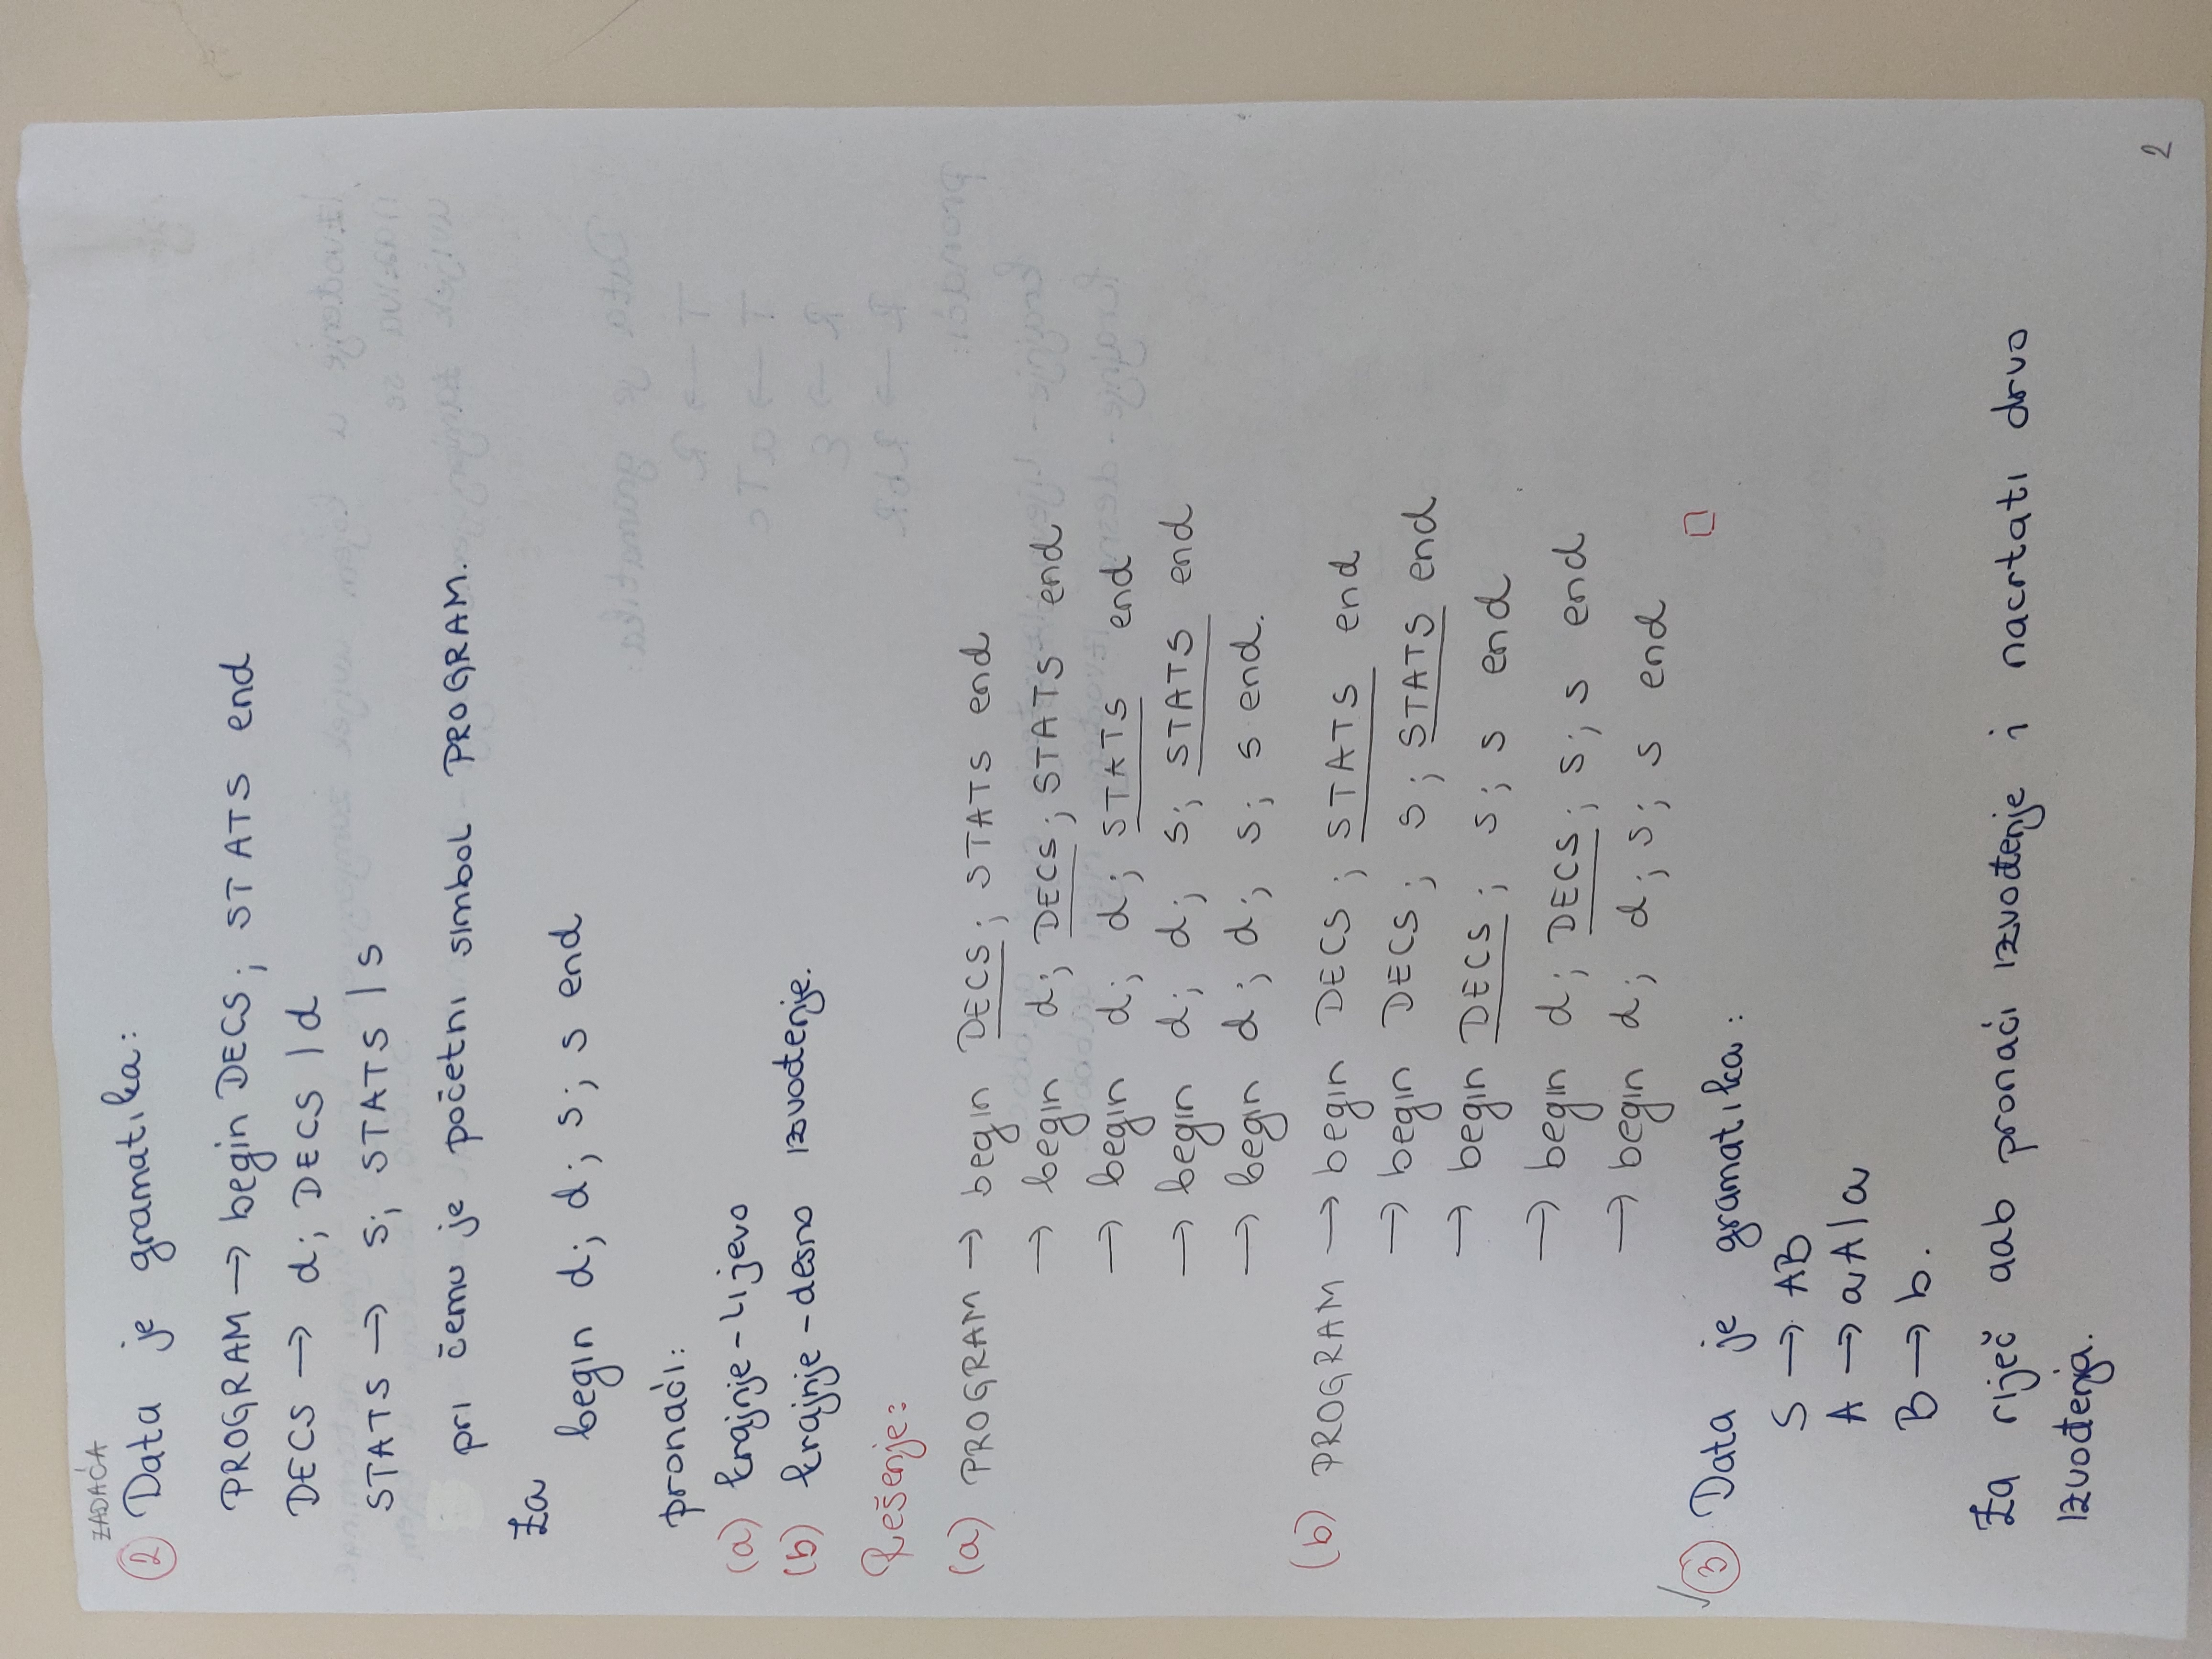 ZADAĆA
② Data je gramatika:
PROGRAM → begin DECS; STATS end
DECS → d; DECS | d
STATS → s; STATS | s
pri čemu je početni simbol PROGRAM.
Za
begin d; d; s; s end
pronaći:
(a) krajnje-lijevo
(b) krajnje-desno izvođenje.
Rešenje:
(a) PROGRAM → begin DECS; STATS end
→ begin d; DECS; STATS end
→ begin d; d; STATS end
→ begin d; d; s; STATS end
→ begin d; d; s; s end.
(b) PROGRAM → begin DECS; STATS end
→ begin DECS; s; STATS end
→ begin DECS; s; s end
→ begin d; DECS; s; s end
→ begin d; d; s; s end
③ Data je gramatika:
S → AB
A → aA|a
B → b.
Za riječ aab pronaći izvođenje i nacrtati drvo
izvođenja.
2